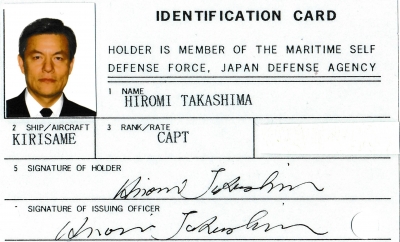 IDENTIFICATION CARD
HOLDER IS MEMBER OF THE MARITIME SELF
DEFENSE FORCE, JAPAN DEFENSE AGENCY
1 NAME
HIROMI TAKASHIMA
2 SHIP/AIRCRAFT
KIRISAME
3 RANK/RATE
CAPT
5 SIGNATURE OF HOLDER
Hiromi Takashima
SIGNATURE OF ISSUING OFFICER
Hiromi Takashima